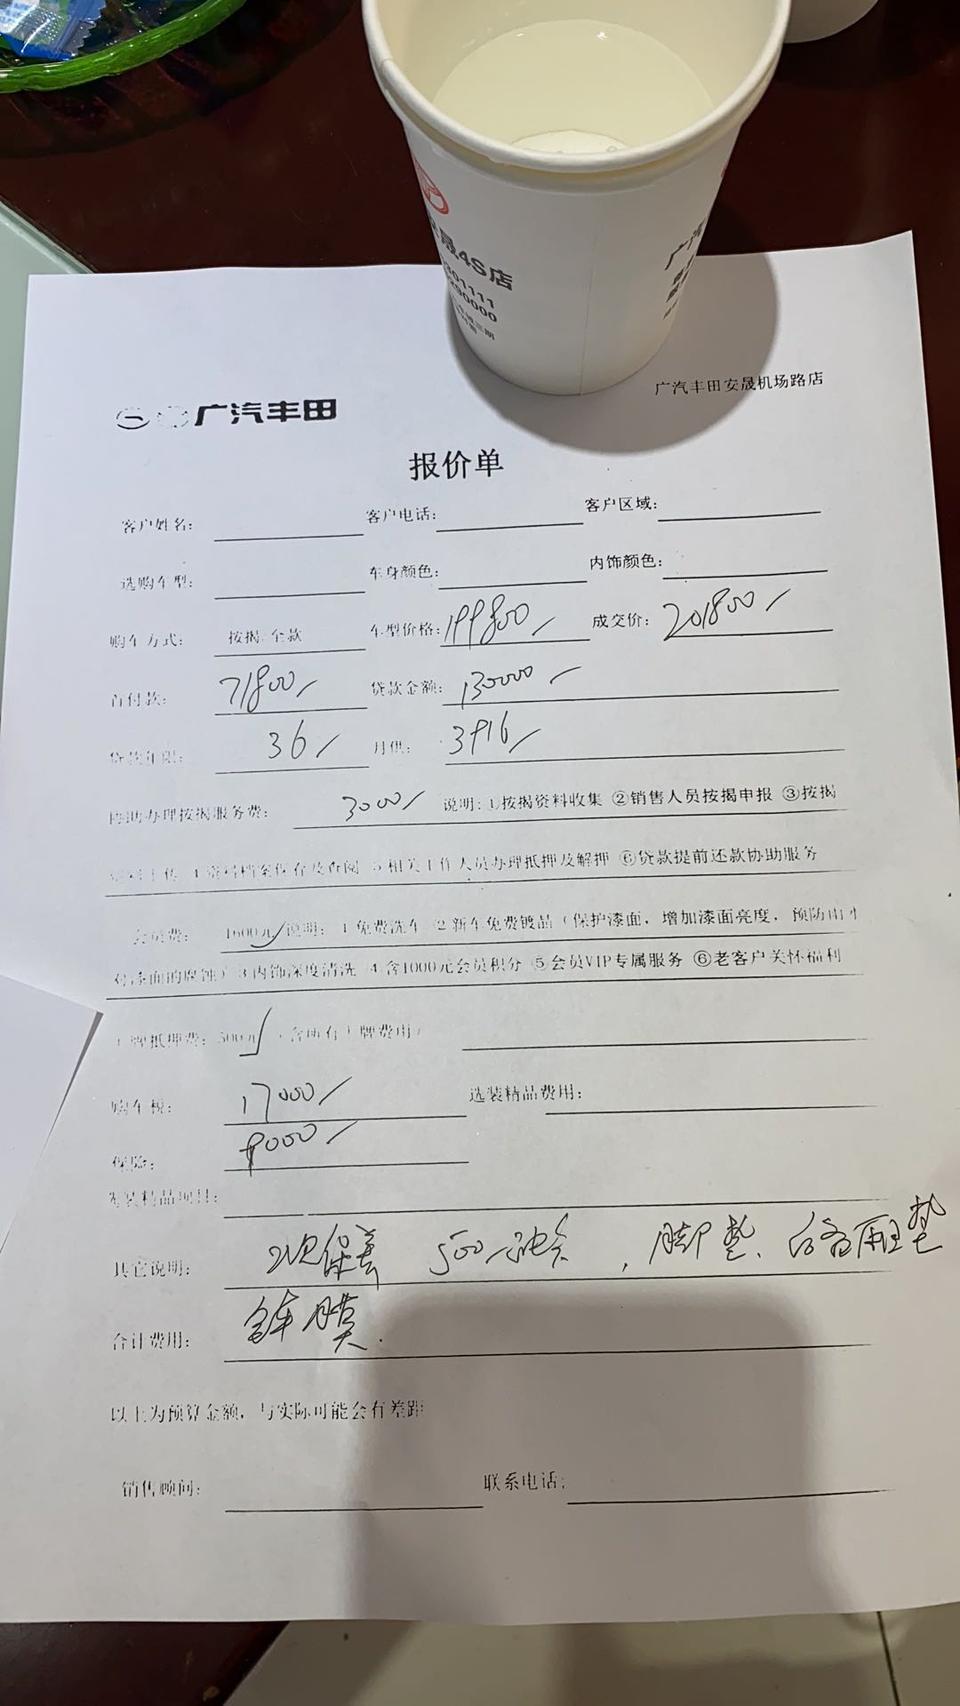 晟4S店
01111
广汽丰田安晟机场路店
广汽丰田
报价单
客户姓名: 客户电话: 客户区域:
选购车型: 车身颜色: 内饰颜色:
购车方式: 按揭 全款 车型价格: 199800 成交价: 201800
首付款: 71800 贷款金额: 130000
贷款年限: 36 月供: 3916
协助办理按揭服务费: 3000 说明: ①按揭资料收集 ②销售人员按揭申报 ③按揭
资料上传 4 资料档案保存及查阅 5 相关工作人员办理抵押及解押 ⑥贷款提前还款协助服务
会员费: 1600元 说明: 1 免费洗车 2 新车免费镀晶（保护漆面, 增加漆面亮度, 预防雨水
对漆面的腐蚀）3 内饰深度清洗 4 含1000元会员积分 ⑤会员VIP专属服务 ⑥老客户关怀福利
上牌抵押费: 500元（含所有上牌费用）
购车税: 17000 选装精品费用:
保险: 9000
选装精品项目:
其它说明: 2次保养 500油卡, 脚垫、后备厢垫
合计费用: 全车膜.
以上为预算金额, 与实际可能会有差距
销售顾问: 联系电话: